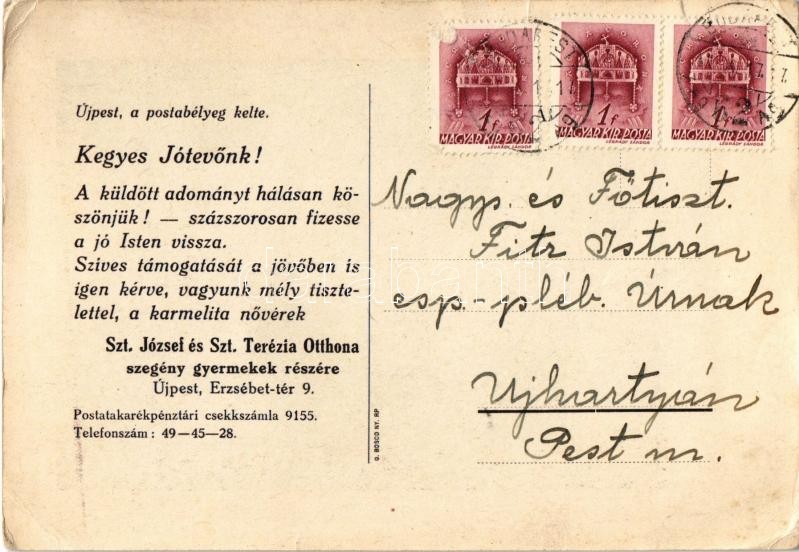 Újpest, a postabélyeg kelte.
Kegyes Jótevőnk!
A küldött adományt hálásan kö-
szönjük! — százszorosan fizesse
a jó Isten vissza.
Szives támogatását a jövőben is
igen kérve, vagyunk mély tiszte-
lettel, a karmelita nővérek
Szt. József és Szt. Terézia Otthona
szegény gyermekek részére
Újpest, Erzsébet-tér 9.
Postatakarékpénztári csekkszámla 9155.
Telefonszám: 49—45—28.
G. BOSCO NY. RP
1f 1f 1f
MAGYAR KIR. POSTA MAGYAR KIR. POSTA MAGYAR KIR. POSTA
LÉGRÁDY SÁNDOR LÉGRÁDY SÁNDOR LÉGRÁDY SÁNDOR
BUDAPEST
Nagys. és Főtiszt.
Fitz István
esp.-pléb. Úrnak
Ujhartyán
Pest m.